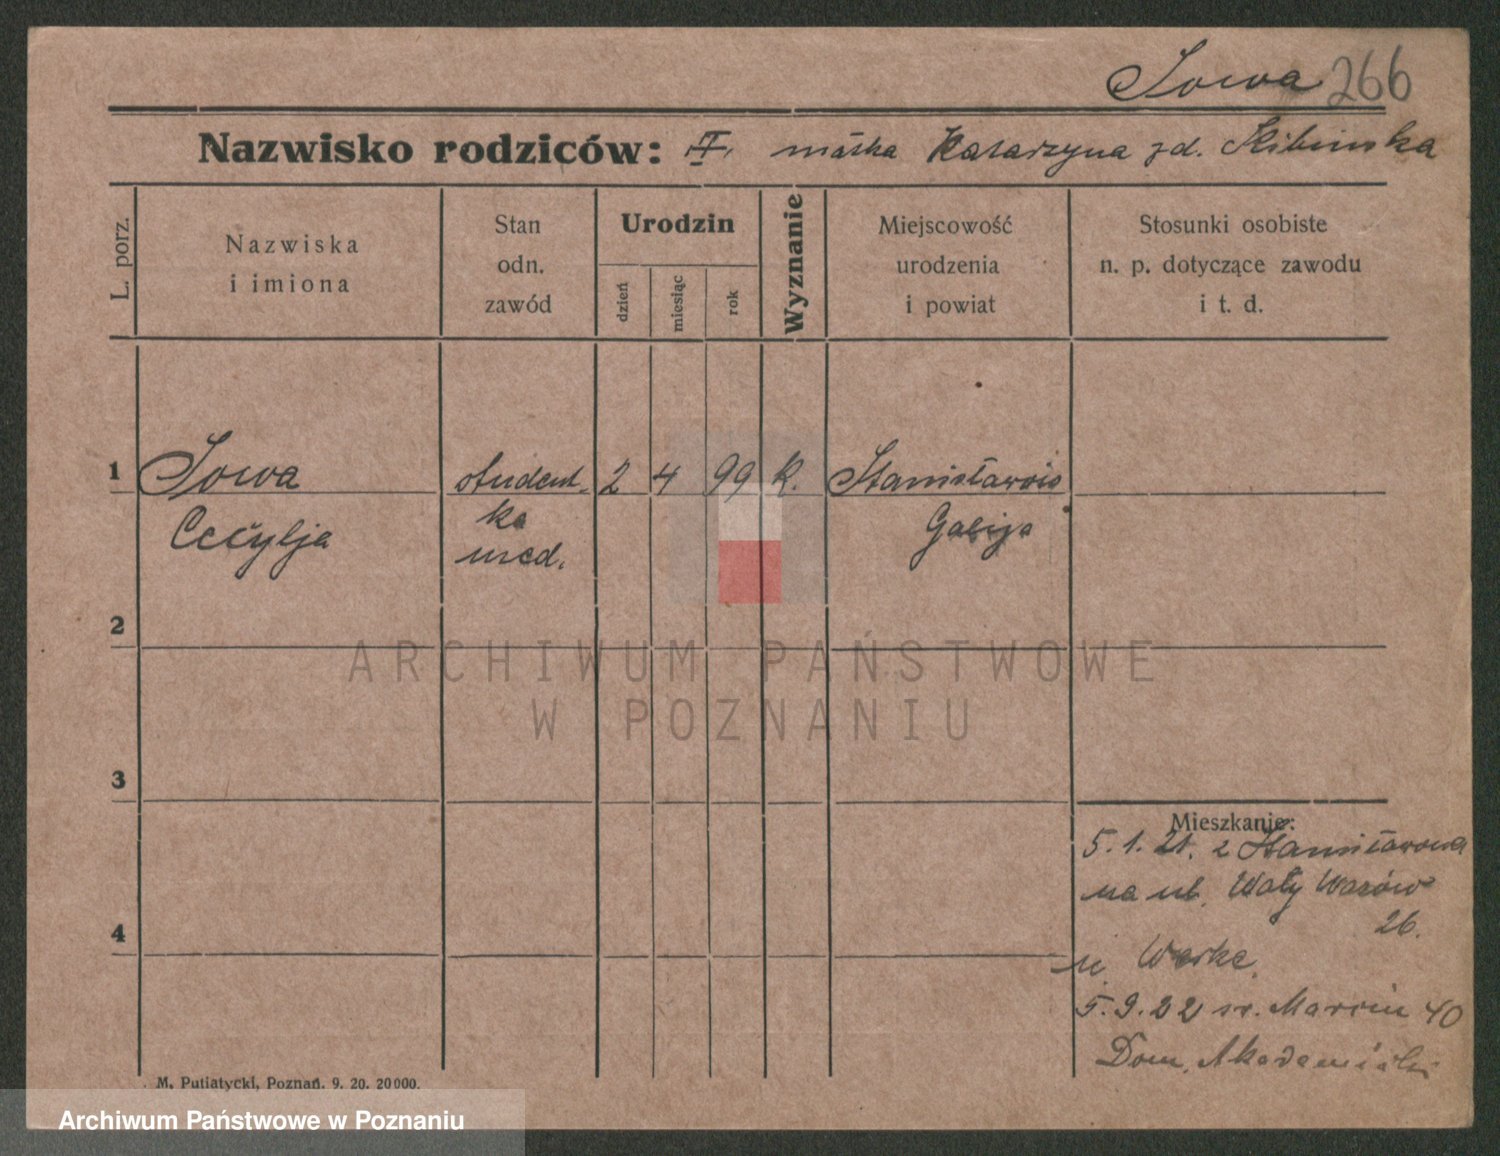 Sowa 266
Nazwisko rodziców: matka Katarzyna zd. Skibińska
L. porz.
Nazwiska
i imiona
Stan
odn.
zawód
Urodzin
dzień
miesiąc
rok
Wyznanie
Miejscowość
urodzenia
i powiat
Stosunki osobiste
n. p. dotyczące zawodu
i t. d.
1 Sowa student. 2 4 99 k. Stanisławów
Cecylja ka
med.
2
3
4
Mieszkanie:
5.1.21. z Stanisławowa
na ul. Wały Wazów
26.
5.9.22 św. Marcin 40
Dom. Akademicki
M. Putiatycki, Poznań. 9. 20. 20000.
ARCHIWUM PAŃSTWOWE
W POZNANIU
Archiwum Państwowe w Poznaniu